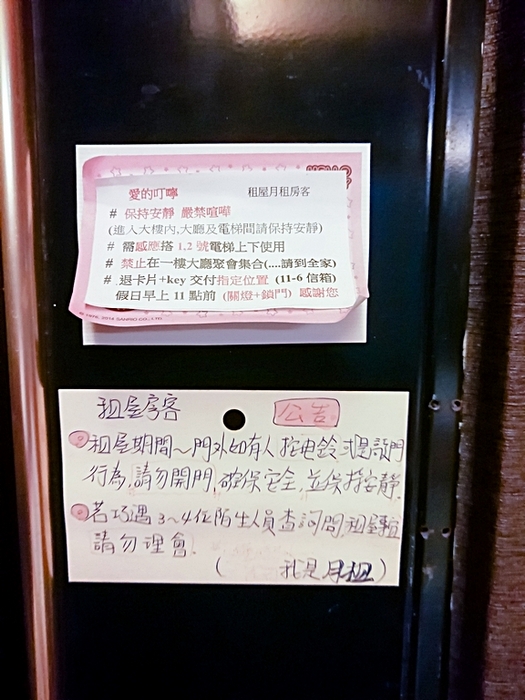 愛的叮嚀 租屋月租房客
# 保持安靜 嚴禁喧嘩
(進入大樓內,大廳及電梯間請保持安靜)
# 需感應搭 1,2 號電梯上下使用
# 禁止在一樓大廳聚會集合(....請到全家)
# 退卡片+key 交付指定位置 (11-6 信箱)
假日早上 11 點前 (關燈+鎖門) 感謝您
SANRIO CO., LTD.
租屋房客 公告
租屋期間~門外如有人按电鈴或是敲門
行為,請勿開門,確保安全,並保持安靜.
若巧遇3~4位陌生人員查詢問,租屋事宜
請勿理會.
( 我是月租)